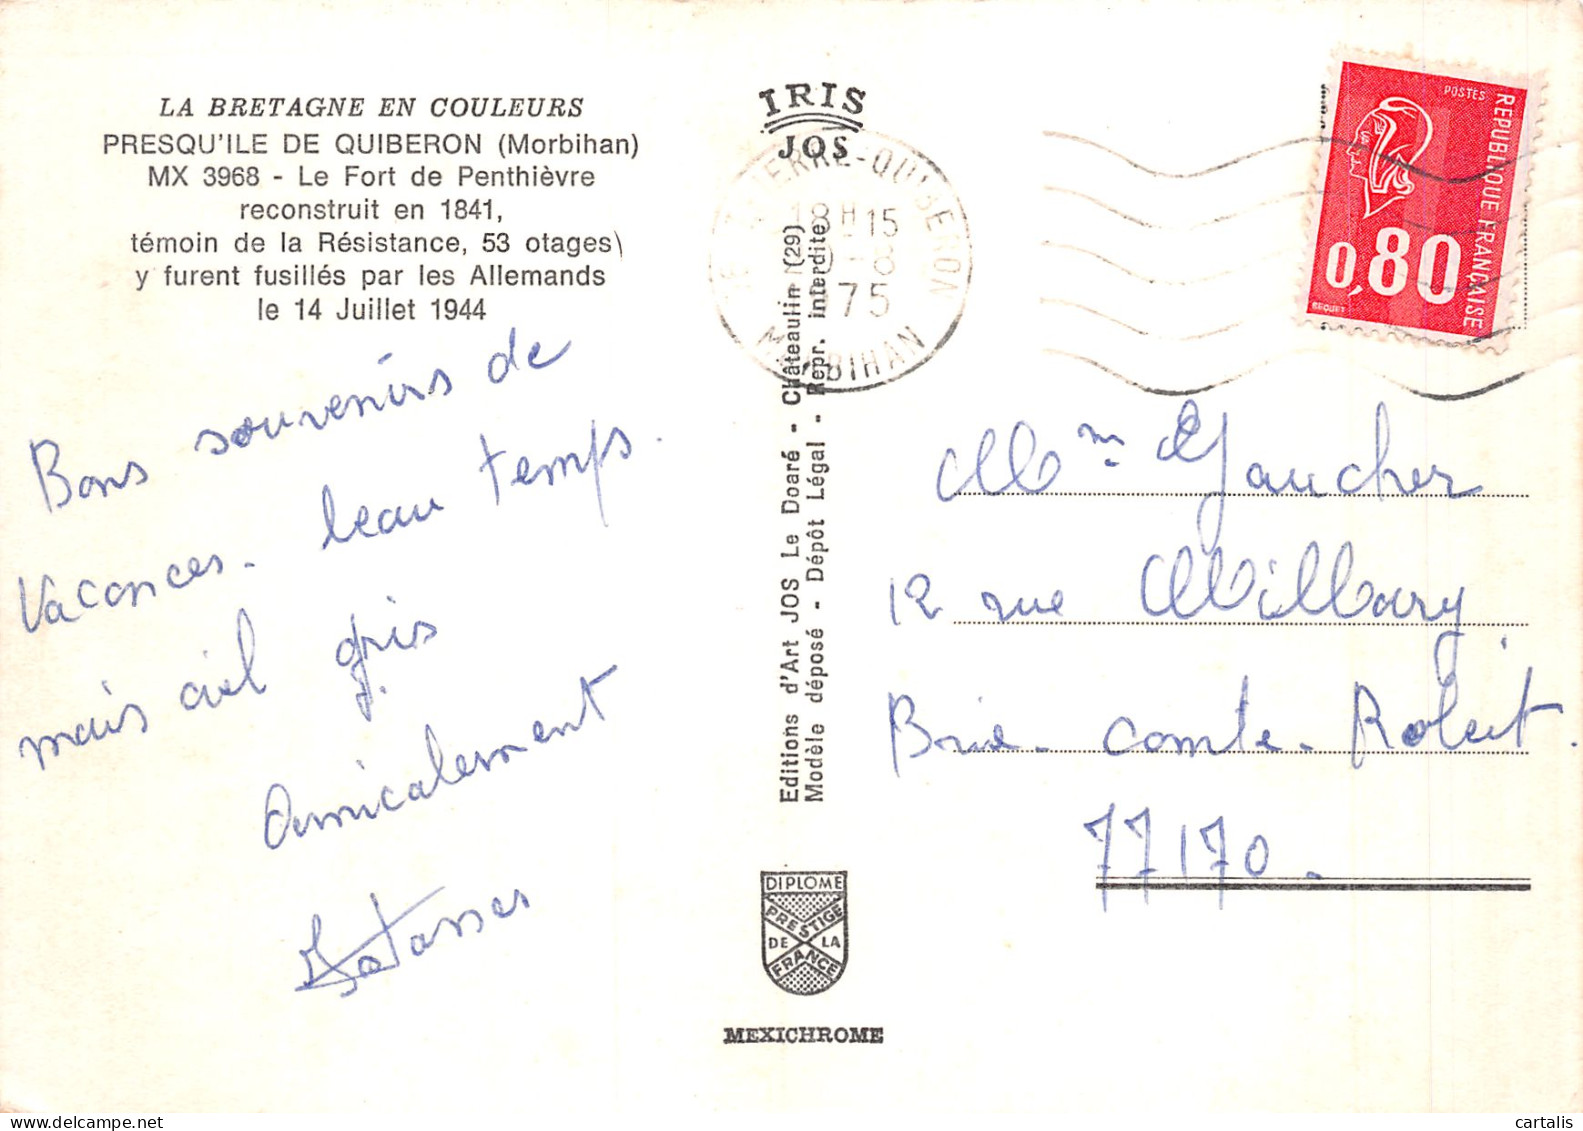 LA BRETAGNE EN COULEURS
PRESQU'ILE DE QUIBERON (Morbihan)
MX 3968 - Le Fort de Penthièvre
reconstruit en 1841,
témoin de la Résistance, 53 otages
y furent fusillés par les Allemands
le 14 Juillet 1944
Bons souvenirs de
Vacances. beau temps.
mais ciel gris
Amicalement
IRIS
JOS
PIERRE-QUIBERON
18H15
-8
1975
MORBIHAN
Editions d'Art JOS Le Doaré - Châteaulin (29)
Modèle déposé - Dépôt Légal - Repr. interdite
DIPLOME
PRESTIGE
DE LA
FRANCE
MEXICHROME
POSTES
REPUBLIQUE FRANÇAISE
0,80
BEQUET
Mm Gaucher
12 rue
Brie-comte-Robert.
77170.
cartalis